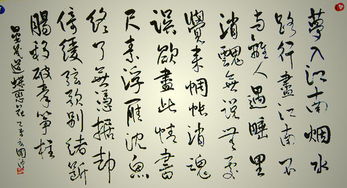 夢入江南烟水
路行盡江南不
与離人遇睡里
消魂無説處
覺來惆悵消魂
誤欲盡此情書
尺素浮雁沈魚
終了無憑據却
倚緩弦歌別緒斷
腸移破秦筝柱
蝶戀花